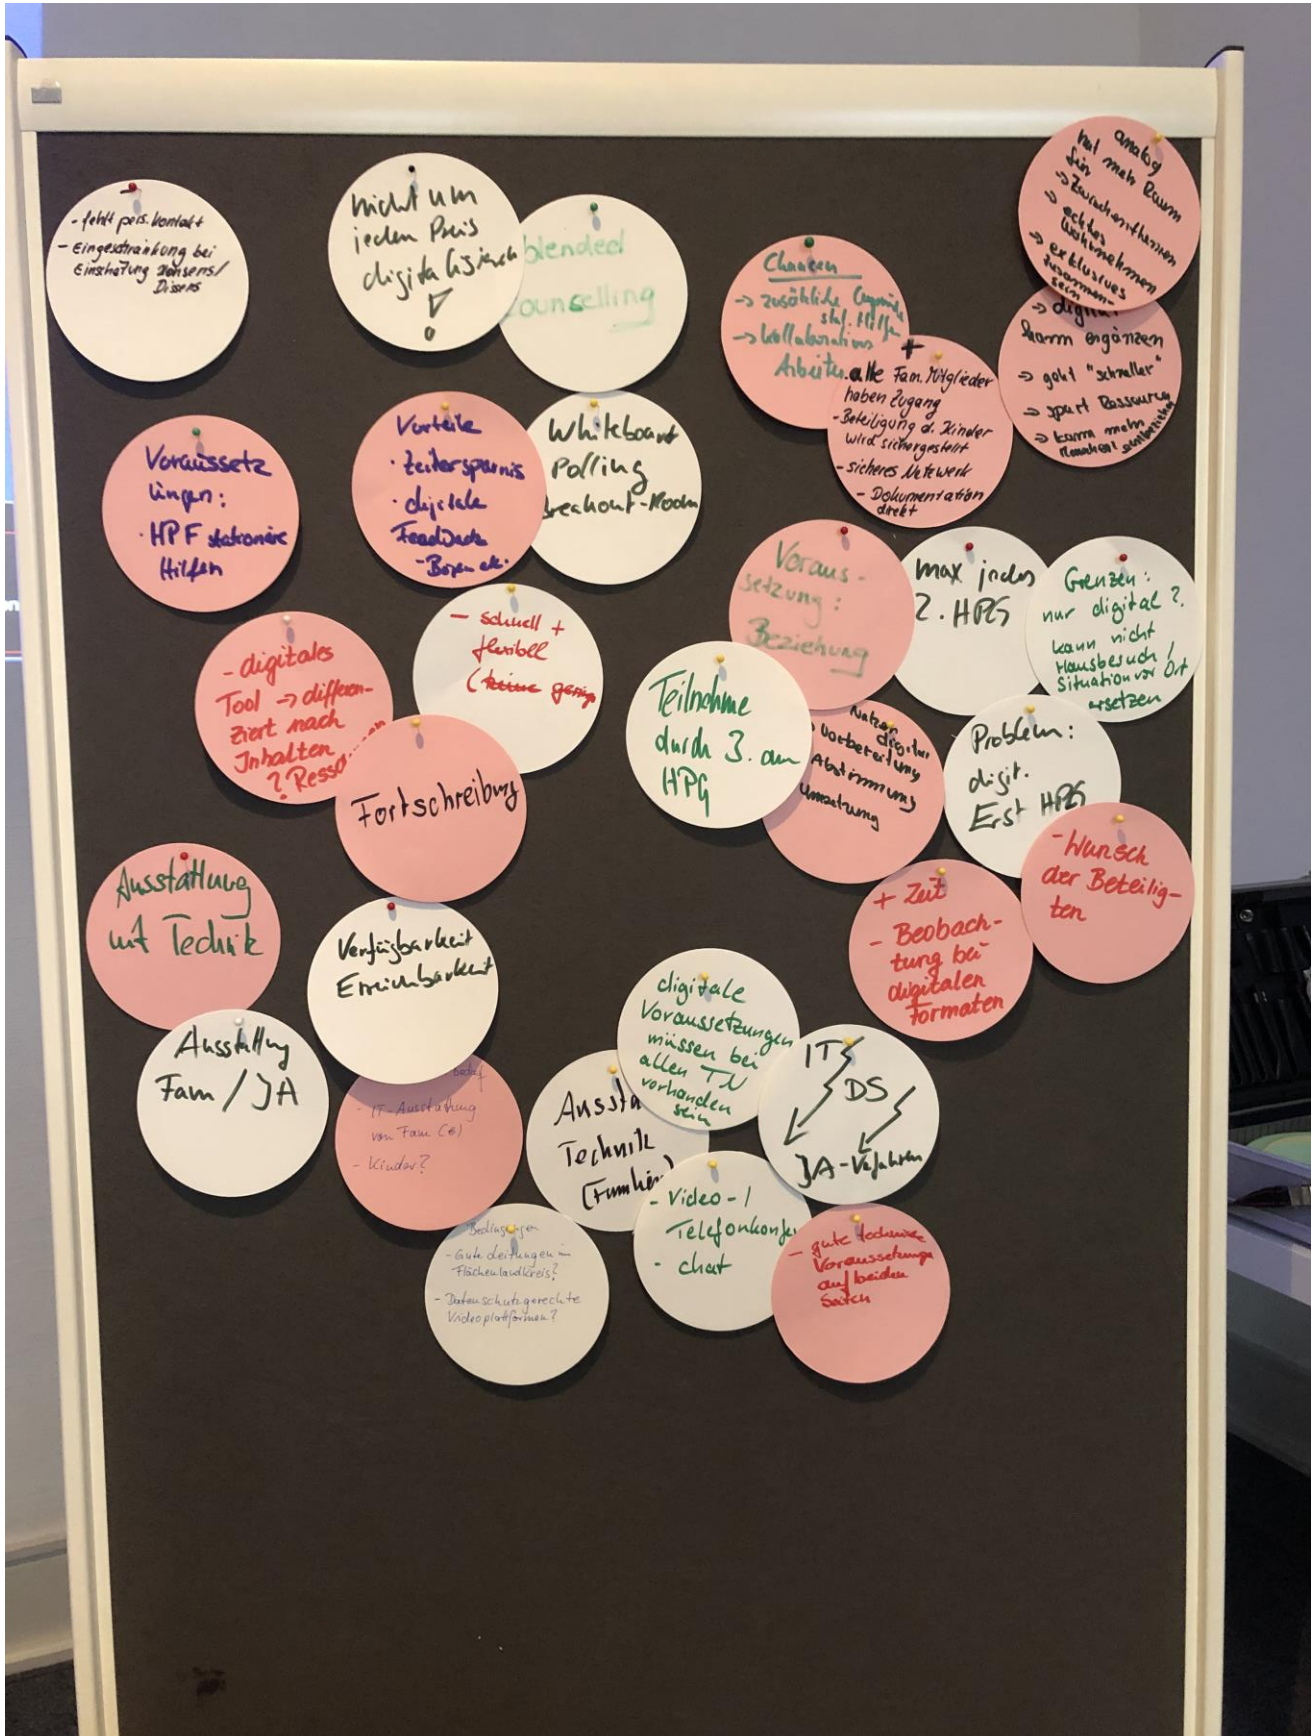 - fehlt pers. Kontakt
- Eingeschränkung bei
Einschätung Konsens/
Dissens
nicht um
jeden Preis
digitalisieren
!
blended
ounselling
Chancen
-> zusätzliche
stat. Hilfen
-> kollaboratives
Arbeiten
analog
hat mehr Raum
für
-> Zwischenthemen
-> echtes
Wahrnehmen
-> exklusives
zusammen-
sein
-> digital
kann ergänzen
-> geht "schneller"
-> spart Ressourcen
-> kann mehr
Menschen einbeziehen
+
alle Fam. Mitglieder
haben Zugang
- Beteiligung d. Kinder
wird sichergestellt
- sicheres Netzwerk
- Dokumentation
direkt
Voraussetz
ungen:
· HPF stationäre
Hilfen
Vorteile
· Zeitersparnis
· digitale
Feedback
- Boxen etc.
Whiteboard
Polling
Breakout-Room
Voraus-
setzung:
Beziehung
max jedes
2. HPG
Grenzen:
nur digital?
kann nicht
Hausbesuch /
Situation vor Ort
ersetzen
- schnell +
flexibel
(keine geringe
- digitales
Tool -> differen-
ziert nach
Inhalten
? Resso
Fortschreibung
Teilnahme
durch 3. am
HPG
Nutzen
digitaler
Vorbereitung
Abstimmung
Umsetzung
Problem:
digit.
Erst HPG
- Wunsch
der Beteilig-
ten
+ Zeit
- Beobach-
tung bei
digitalen
Formaten
Ausstattung
mit Technik
Verfügbarkeit
Erreichbarkeit
Ausstattung
Fam / JA
bedarf
- IT-Ausstattung
von Fam (€)
- Kinder?
Aussta
Technik
(Familien)
digitale
Voraussetzungen
müssen bei
allen TN
vorhanden
sein
IT
DS
JA-Verfahren
- Video- /
Telefonkonfe
- chat
Bedingungen
- Gute Leitungen im
Flächenlandkreis?
- Datenschutzgerechte
Videoplattformen?
- gute technische
Voraussetzungen
auf beiden
Seiten